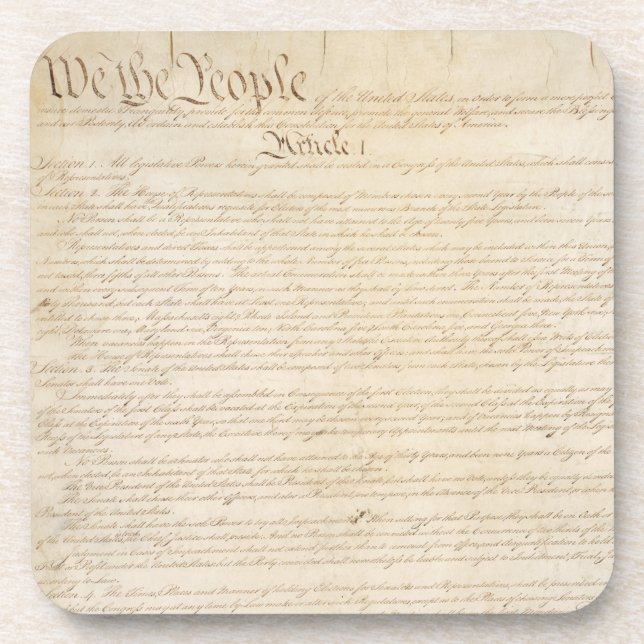 We the People of the United States, in Order to form a more perfect
insure domestic Tranquility, provide for the common defence, promote the general Welfare, and secure the Blessings
and our Posterity, do ordain and establish this Constitution for the United States of America.
Article I.
Section 1. All legislative Powers herein granted shall be vested in a Congress of the United States, which shall consist
of Representatives.
Section 2. The House of Representatives shall be composed of Members chosen every second Year by the People of the
in each State shall have the Qualifications requisite for Electors of the most numerous Branch of the State Legislature.
No Person shall be a Representative who shall not have attained to the Age of twenty five Years, and been seven Years
and who shall not, when elected, be an Inhabitant of that State in which he shall be chosen.
Representatives and direct Taxes shall be apportioned among the several States which may be included within this Union,
Numbers, which shall be determined by adding to the whole Number of free Persons, including those bound to Service for a Term of
not taxed, three fifths of all other Persons. The actual Enumeration shall be made within three Years after the first Meeting of
and within every subsequent Term of ten Years, in such Manner as they shall by Law direct. The Number of Representatives
thirty Thousand, but each State shall have at Least one Representative; and until such enumeration shall be made, the State of
entitled to chuse three, Massachusetts eight, Rhode Island and Providence Plantations one, Connecticut five, New York six,
eight, Delaware one, Maryland six, Virginia ten, North Carolina five, South Carolina five, and Georgia three.
When vacancies happen in the Representation from any State, the Executive Authority thereof shall issue Writs of Election
The House of Representatives shall chuse their Speaker and other Officers; and shall have the sole Power of Impeachment
Section 3. The Senate of the United States shall be composed of two Senators from each State, chosen by the Legislature
Senator shall have one Vote.
Immediately after they shall be assembled in Consequence of the first Election, they shall be divided as equally as may
of the Senators of the first Class shall be vacated at the Expiration of the second Year, of the second Class at the Expiration of the
Class at the Expiration of the sixth Year, so that one third may be chosen every second Year; and if Vacancies happen by Resignation
Recess of the Legislature of any State, the Executive thereof may make temporary Appointments until the next Meeting of the
such Vacancies.
No Person shall be a Senator who shall not have attained to the Age of thirty Years, and been nine Years a Citizen of the
not, when elected, be an Inhabitant of that State for which he shall be chosen.
The Vice President of the United States shall be President of the Senate, but shall have no Vote, unless they be equally
The Senate shall chuse their other Officers, and also a President pro tempore, in the Absence of the Vice President, or when
President of the United States.
The Senate shall have the sole Power to try all Impeachments. When sitting for that Purpose, they shall be on Oath
of the United States, the Chief Justice shall preside: And no Person shall be convicted without the Concurrence of two thirds of the
Judgment in Cases of Impeachment shall not extend further than to removal from Office, and disqualification to hold
Trust or Profit under the United States: but the Party convicted shall nevertheless be liable and subject to Indictment, Trial,
according to Law.
Section 4. The Times, Places and Manner of holding Elections for Senators and Representatives, shall be prescribed
but the Congress may at any time by Law make or alter such Regulations, except as to the Places of chusing Senators.